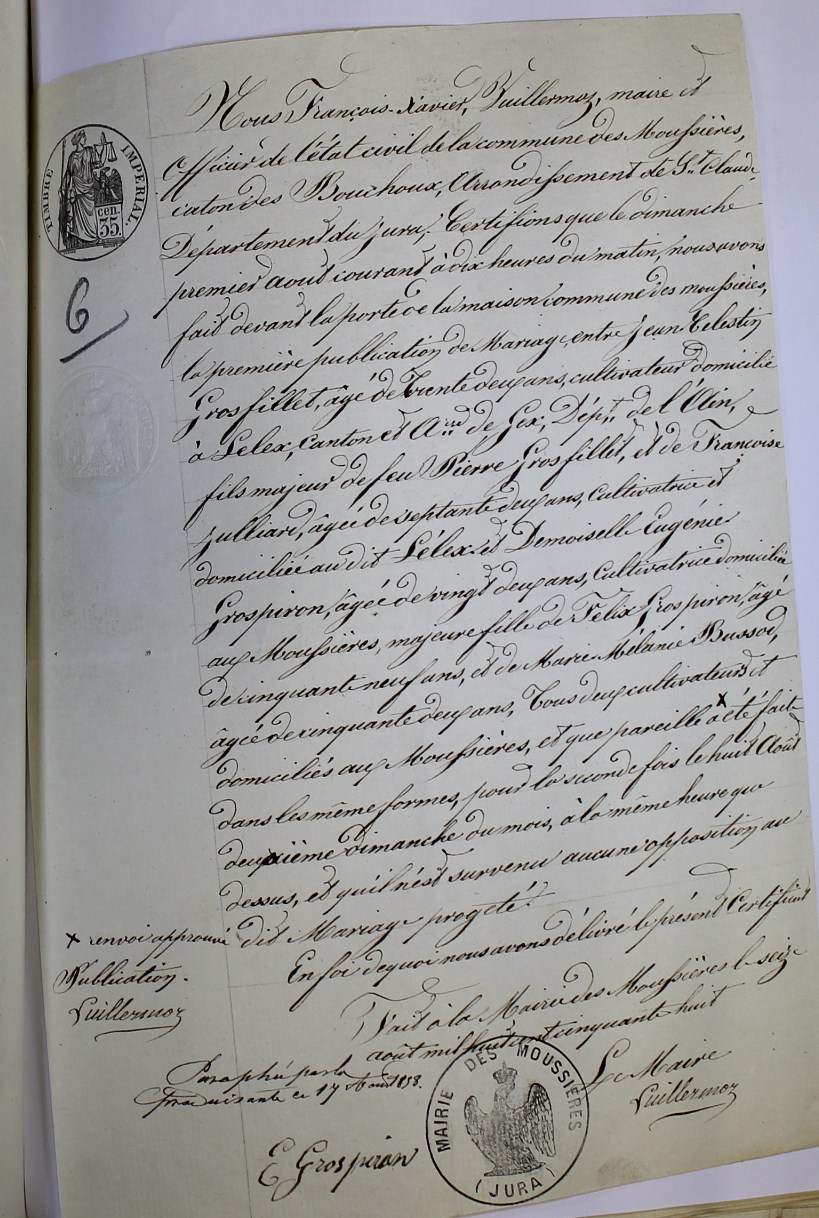 TIMBRE IMPERIAL.
35.
cen.
6
Nous François-Xavier, Vuillermoz, maire et
Officier de l'état civil de la commune des Moussières,
caton des Bouchoux, Arrondissement de St Claude
Département du jura, Certifions que le dimanche
premier aout courant à dix heures du matin, nous avons
fait devant la porte de la maison commune des moussières,
la première publication de Mariage, entre jean Celestin
Grosfillet, âgé de Trente deux ans, cultivateur domicilié
à Lelex, Canton et Arrd de Gex, Dépt de l'Ain,
fils majeur de feu Pierre Grosfillet, et de Francoise
julliard, âgée de septante deux ans, Cultivatrice et
domiciliée au dit Lélex et Demoiselle Eugénie
Grospiron, âgée de vingt deux ans, Cultivatrice domiciliée
aux Moussières, majeure fille de Félix Grospiron, âgé
de cinquante neuf ans, et de Marie Mélanie Bussod,
âgée de cinquante deux ans, Tous deux cultivateurs et
domiciliés aux Moussières, et que pareille x a été faite
dans les même formes, pour la seconde fois le huit Août
deuxième dimanche du mois, à la même heure que
dessus, et qu'il n'est survenu aucune opposition au
dit Mariage progeté.
x renvoi approuvé
Publication.
Vuillermoz
En foi de quoi nous avons délivré le présent Certificat
Fait à la Mairie des Moussières le seize
août mil huit cent cinquante huit
Le Maire
Vuillermoz
Paraphé par la
produisante ce 17 Aout 1858.
E Grospiron
MAIRIE DES MOUSSIÈRES
(JURA)